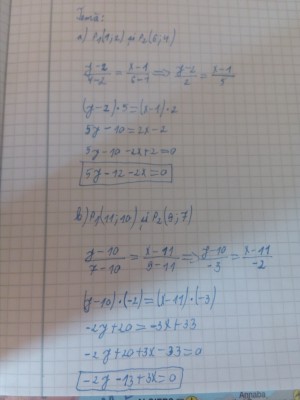 Temă:
a) P₁(1,2) și P₂(6,4)
y-2/4-2 = x-1/6-1 => y-2/2 = x-1/5
(y-2)·5=(x-1)·2
5y-10=2x-2
5y-10-2x+2=0
5y-12-2x=0
b) P₁(11;10) și P₂(9;7)
y-10/7-10 = x-11/9-11 => y-10/-3 = x-11/-2
(y-10)·(-2)=(x-11)·(-3)
-2y+20=-3x+33
-2y+20+3x-33=0
-2y-13+3x=0